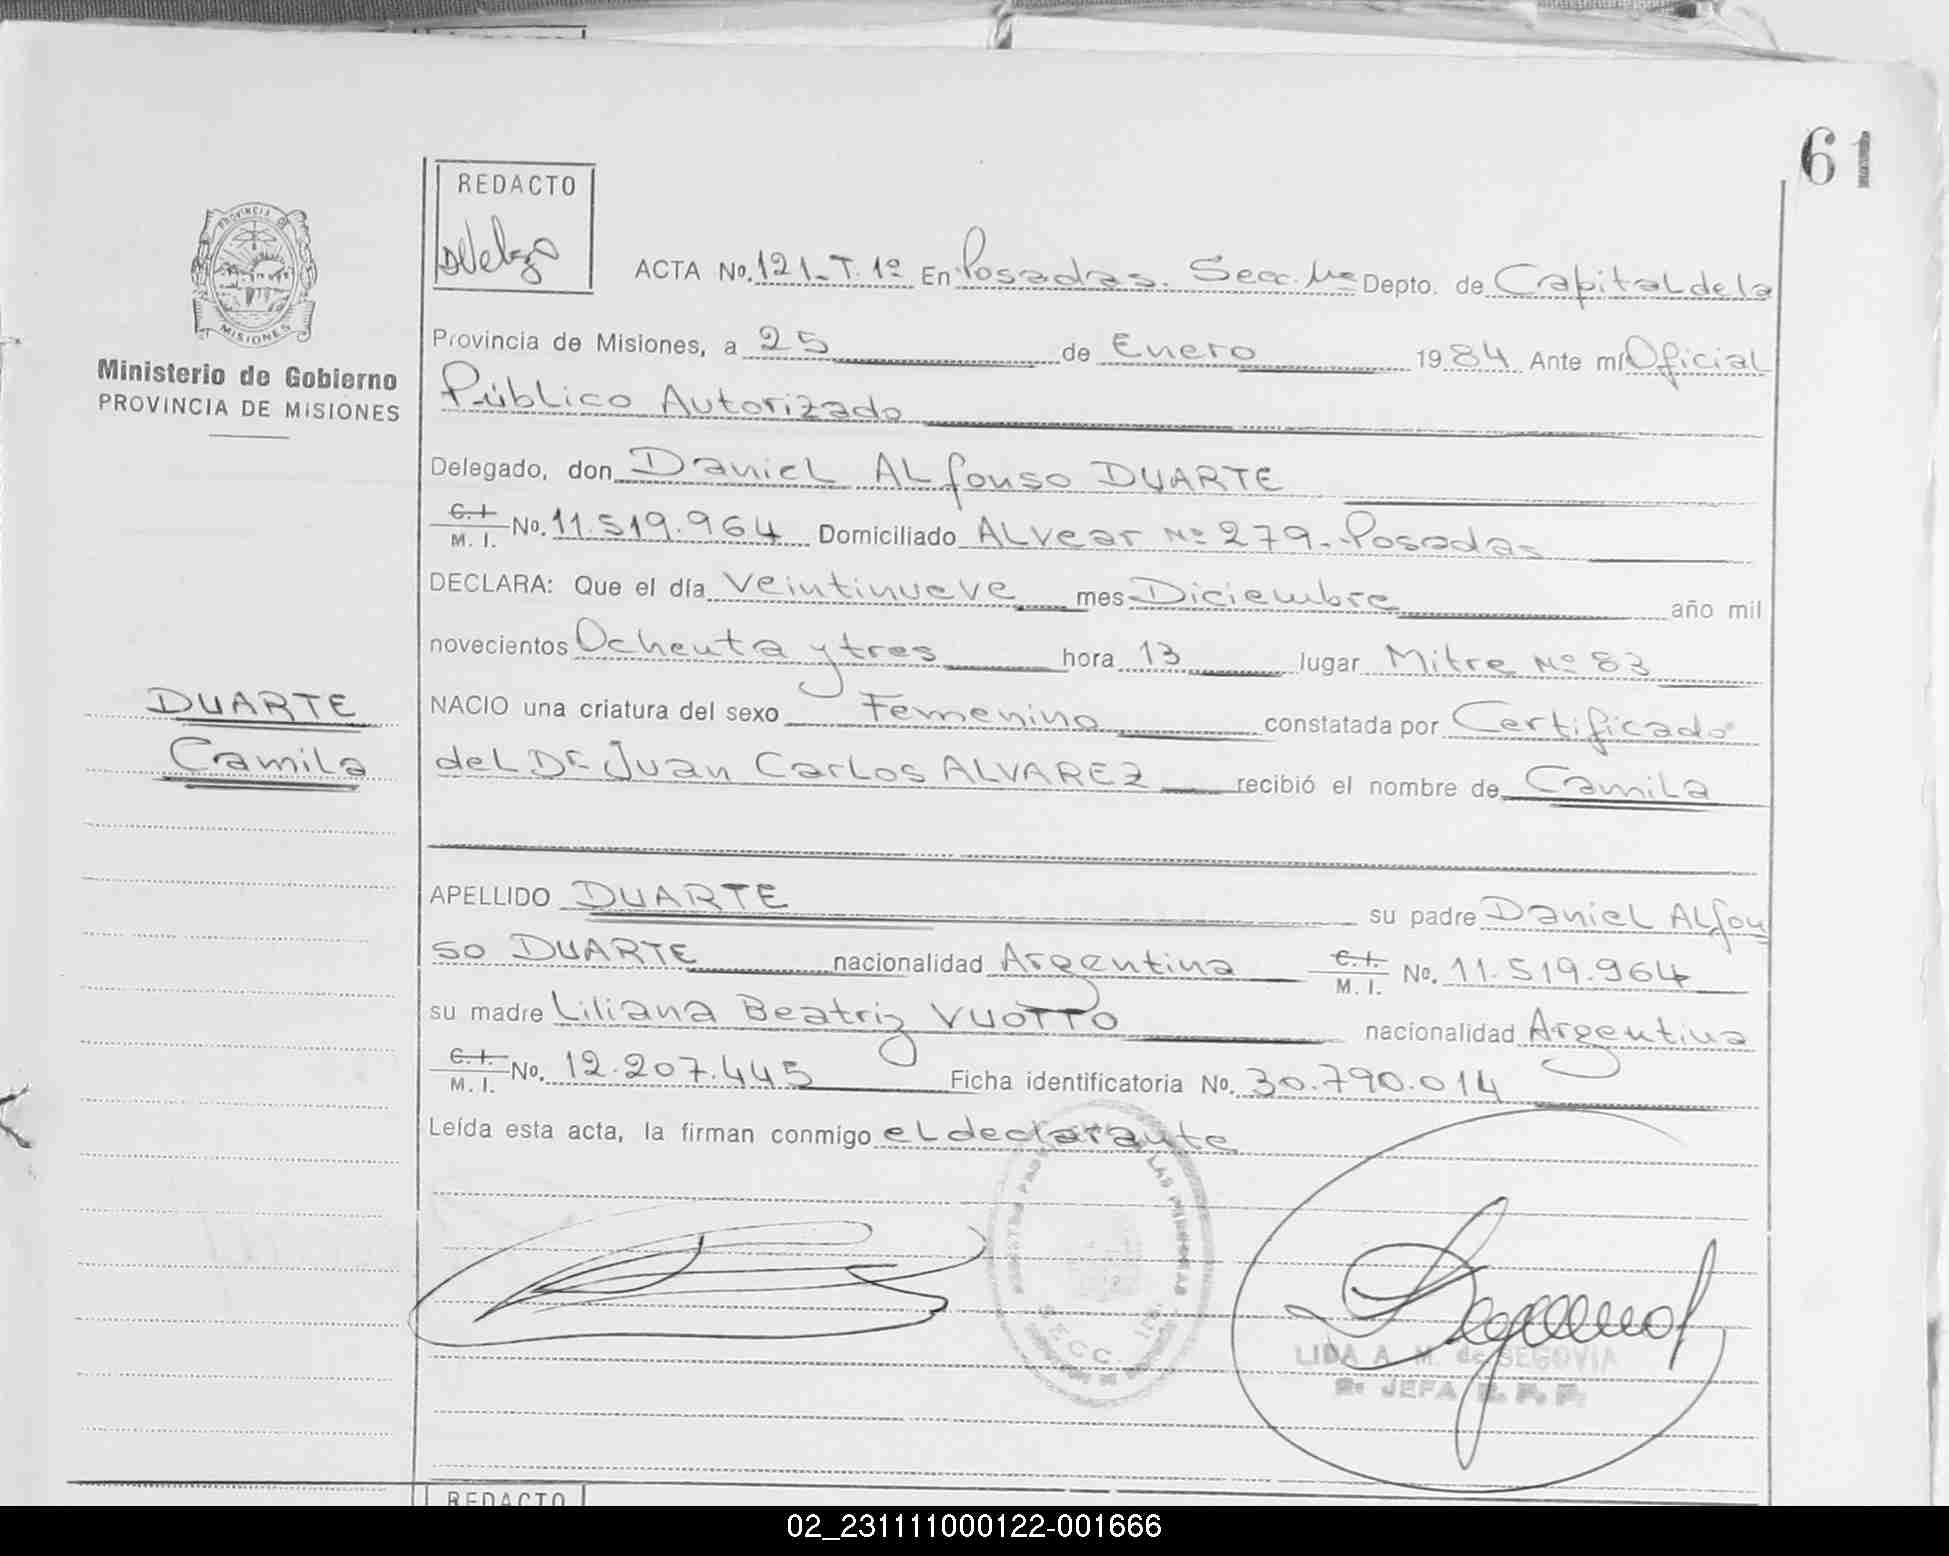 61
REDACTO
PROVINCIA DE
MISIONES
Ministerio de Gobierno
PROVINCIA DE MISIONES
ACTA No. 121-T. 1º En Posadas. Secc. 1ra Depto. de Capital de la
Provincia de Misiones, a 25 de Enero 1984 Ante mí Oficial
Público Autorizado
Delegado, don Daniel Alfonso DUARTE
C. I. M. I. No. 11.519.964 Domiciliado Alvear Nº 279. Posadas
DECLARA: Que el día Veintinueve mes Diciembre año mil
novecientos Ochenta y tres hora 13 lugar Mitre Nº 83
DUARTE
Camila
NACIO una criatura del sexo Femenino constatada por Certificado
del Dr. Juan Carlos ALVAREZ recibió el nombre de Camila
APELLIDO DUARTE su padre Daniel Alfon
so DUARTE nacionalidad Argentina C. I. M. I. No. 11.519.964
su madre Liliana Beatriz VUOTTO nacionalidad Argentina
C. I. M. I. No. 12.207.445 Ficha identificatoria No. 30.790.014
Leída esta acta, la firman conmigo el declarante
LAS PERSONAS
SECC. 1ra
LIDA A. M. de SEGOVIA
JEFA
REDACTO
02_231111000122-001666